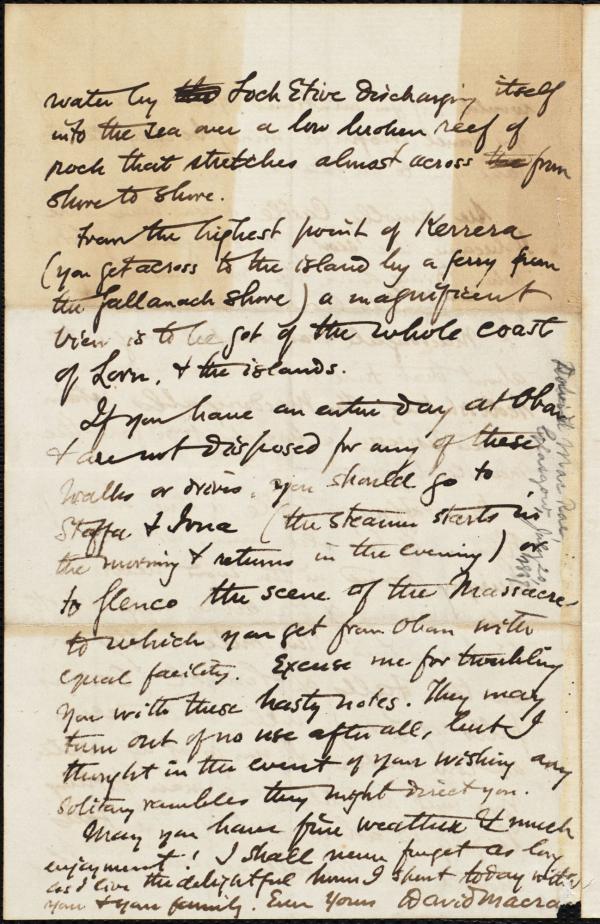 water by the Loch Etive discharging itself
into the sea over a low broken reef of
rock that stretches almost across the from
shore to shore.
From the highest point of Kerrera
(you get across to the island by a ferry from
the Gallanach shore) a magnificent
view is to be got of the whole coast
of Lorn, & the islands.
If you have an entire day at Oban
& are not disposed for any of these
walks or drives, you should go to
Staffa & Iona (the steamer starts in
the morning & returns in the evening) or
to Glenco the scene of the Massacre,
to which you get from Oban with
equal facility. Excuse me for troubling
you with these hasty notes. They may
turn out of no use after all, but I
thought in the event of your wishing any
solitary rambles they might direct you.
May you have fine weather & much
enjoyment! I shall never forget as long
as I live the delightful hours I spent today with
you & your family. Ever yours David Macrae
David Macrae
Glasgow July 20,